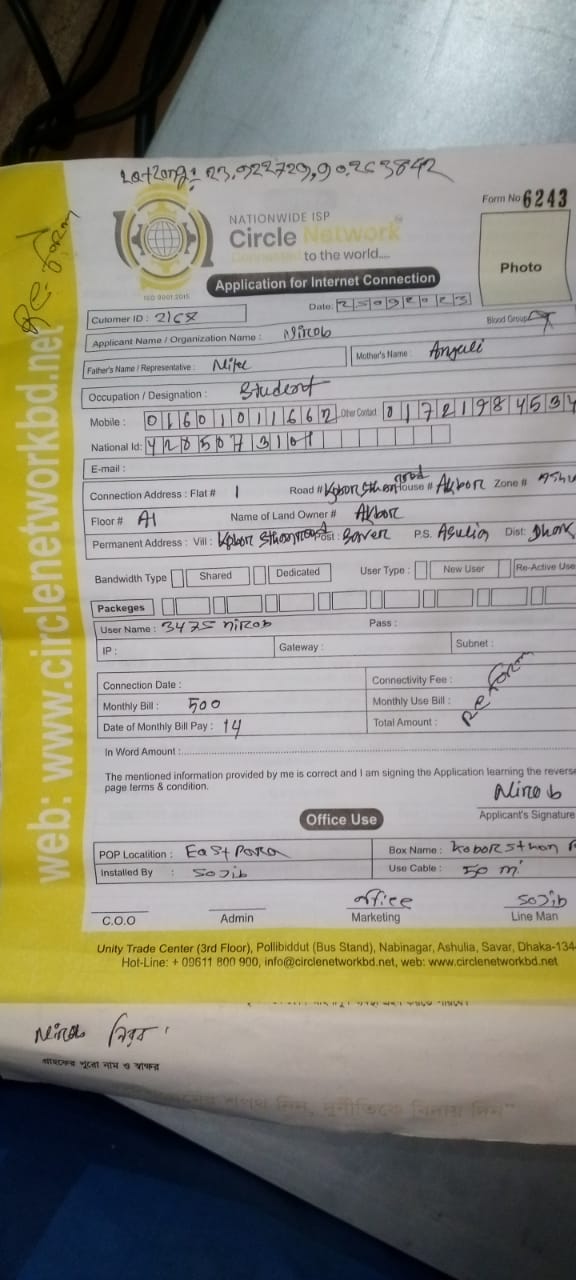 Lat+Long: 23.922729,90.263842
Re: form
NATIONWIDE ISP
Form No 6243
Circle Network
Connected to the world....
ISO 9001:2015
Application for Internet Connection
Photo
Cutomer ID : 2168
Date: 25092023
Blood Group
Applicant Name / Organization Name : Nirob
Father's Name / Representative :
Mother's Name : Anjali
Occupation / Designation : Student
Mobile : 01601011662 Other Contact 01721984534
National Id: 4285073101
E-mail :
Connection Address : Flat # 1 Road # Kobor Sthan road House # Akbor Zone #
Floor # A1 Name of Land Owner # Akbor
Permanent Address : Vill : Kobor Sthan road Post : Saver P.S. Asulia Dist:
Bandwidth Type Shared Dedicated User Type : New User Re-Active Use
Packeges
User Name : 3475 nirob Pass :
IP : Gateway : Subnet :
Connection Date : Connectivity Fee :
Monthly Bill : 500 Monthly Use Bill :
Date of Monthly Bill Pay : 14 Total Amount :
Re form
In Word Amount :
The mentioned information provided by me is correct and I am signing the Application learning the reverse
page terms & condition.
Nirob
Applicant's Signature
Office Use
POP Localtition : East Para Box Name : Kobor Sthan R
Installed By : Sojib Use Cable : 50 m
office Sojib
C.O.O Admin Marketing Line Man
Unity Trade Center (3rd Floor), Pollibiddut (Bus Stand), Nabinagar, Ashulia, Savar, Dhaka-134
Hot-Line: + 09611 800 900, info@circlenetworkbd.net, web: www.circlenetworkbd.net
web: www.circlenetworkbd.net
Nirob নিরব
গ্রাহকের পুরো নাম ও স্বাক্ষর